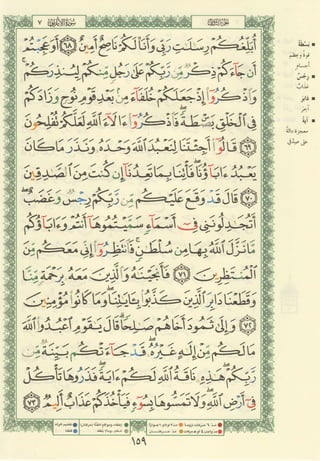 سُورَةُ الأَعْرَافِ ٧
أُبَلِّغُكُمْ رِسَالَاتِ رَبِّي وَأَنَا لَكُمْ نَاصِحٌ أَمِينٌ ٦٨ أَوَعَجِبْتُمْ
أَن جَاءَكُمْ ذِكْرٌ مِّن رَّبِّكُمْ عَلَىٰ رَجُلٍ مِّنكُمْ لِيُنذِرَكُمْ
وَاذْكُرُوا إِذْ جَعَلَكُمْ خُلَفَاءَ مِن بَعْدِ قَوْمِ نُوحٍ وَزَادَكُمْ
فِي الْخَلْقِ بَصْطَةً فَاذْكُرُوا آلَاءَ اللَّهِ لَعَلَّكُمْ تُفْلِحُونَ
٦٩ قَالُوا أَجِئْتَنَا لِنَعْبُدَ اللَّهَ وَحْدَهُ وَنَذَرَ مَا كَانَ
يَعْبُدُ آبَاؤُنَا فَأْتِنَا بِمَا تَعِدُنَا إِن كُنتَ مِنَ الصَّادِقِينَ
٧٠ قَالَ قَدْ وَقَعَ عَلَيْكُم مِّن رَّبِّكُمْ رِجْسٌ وَغَضَبٌ
أَتُجَادِلُونَنِي فِي أَسْمَاءٍ سَمَّيْتُمُوهَا أَنتُمْ وَآبَاؤُكُم
مَّا نَزَّلَ اللَّهُ بِهَا مِن سُلْطَانٍ فَانتَظِرُوا إِنِّي مَعَكُم مِّنَ
الْمُنتَظِرِينَ ٧١ فَأَنجَيْنَاهُ وَالَّذِينَ مَعَهُ بِرَحْمَةٍ مِّنَّا
وَقَطَعْنَا دَابِرَ الَّذِينَ كَذَّبُوا بِآيَاتِنَا وَمَا كَانُوا مُؤْمِنِينَ
٧٢ وَإِلَىٰ ثَمُودَ أَخَاهُمْ صَالِحًا قَالَ يَا قَوْمِ اعْبُدُوا اللَّهَ
مَا لَكُم مِّنْ إِلَٰهٍ غَيْرُهُ قَدْ جَاءَتْكُم بَيِّنَةٌ مِّن
رَّبِّكُمْ هَٰذِهِ نَاقَةُ اللَّهِ لَكُمْ آيَةً فَذَرُوهَا تَأْكُلْ
فِي أَرْضِ اللَّهِ وَلَا تَمَسُّوهَا بِسُوءٍ فَيَأْخُذَكُمْ عَذَابٌ أَلِيمٌ ٧٣
بَصْطَةً
قوة وعظم
أجسام
رِجْسٌ
عذاب
آيَةً
معجزة دالة
على صدقي
١٥٩